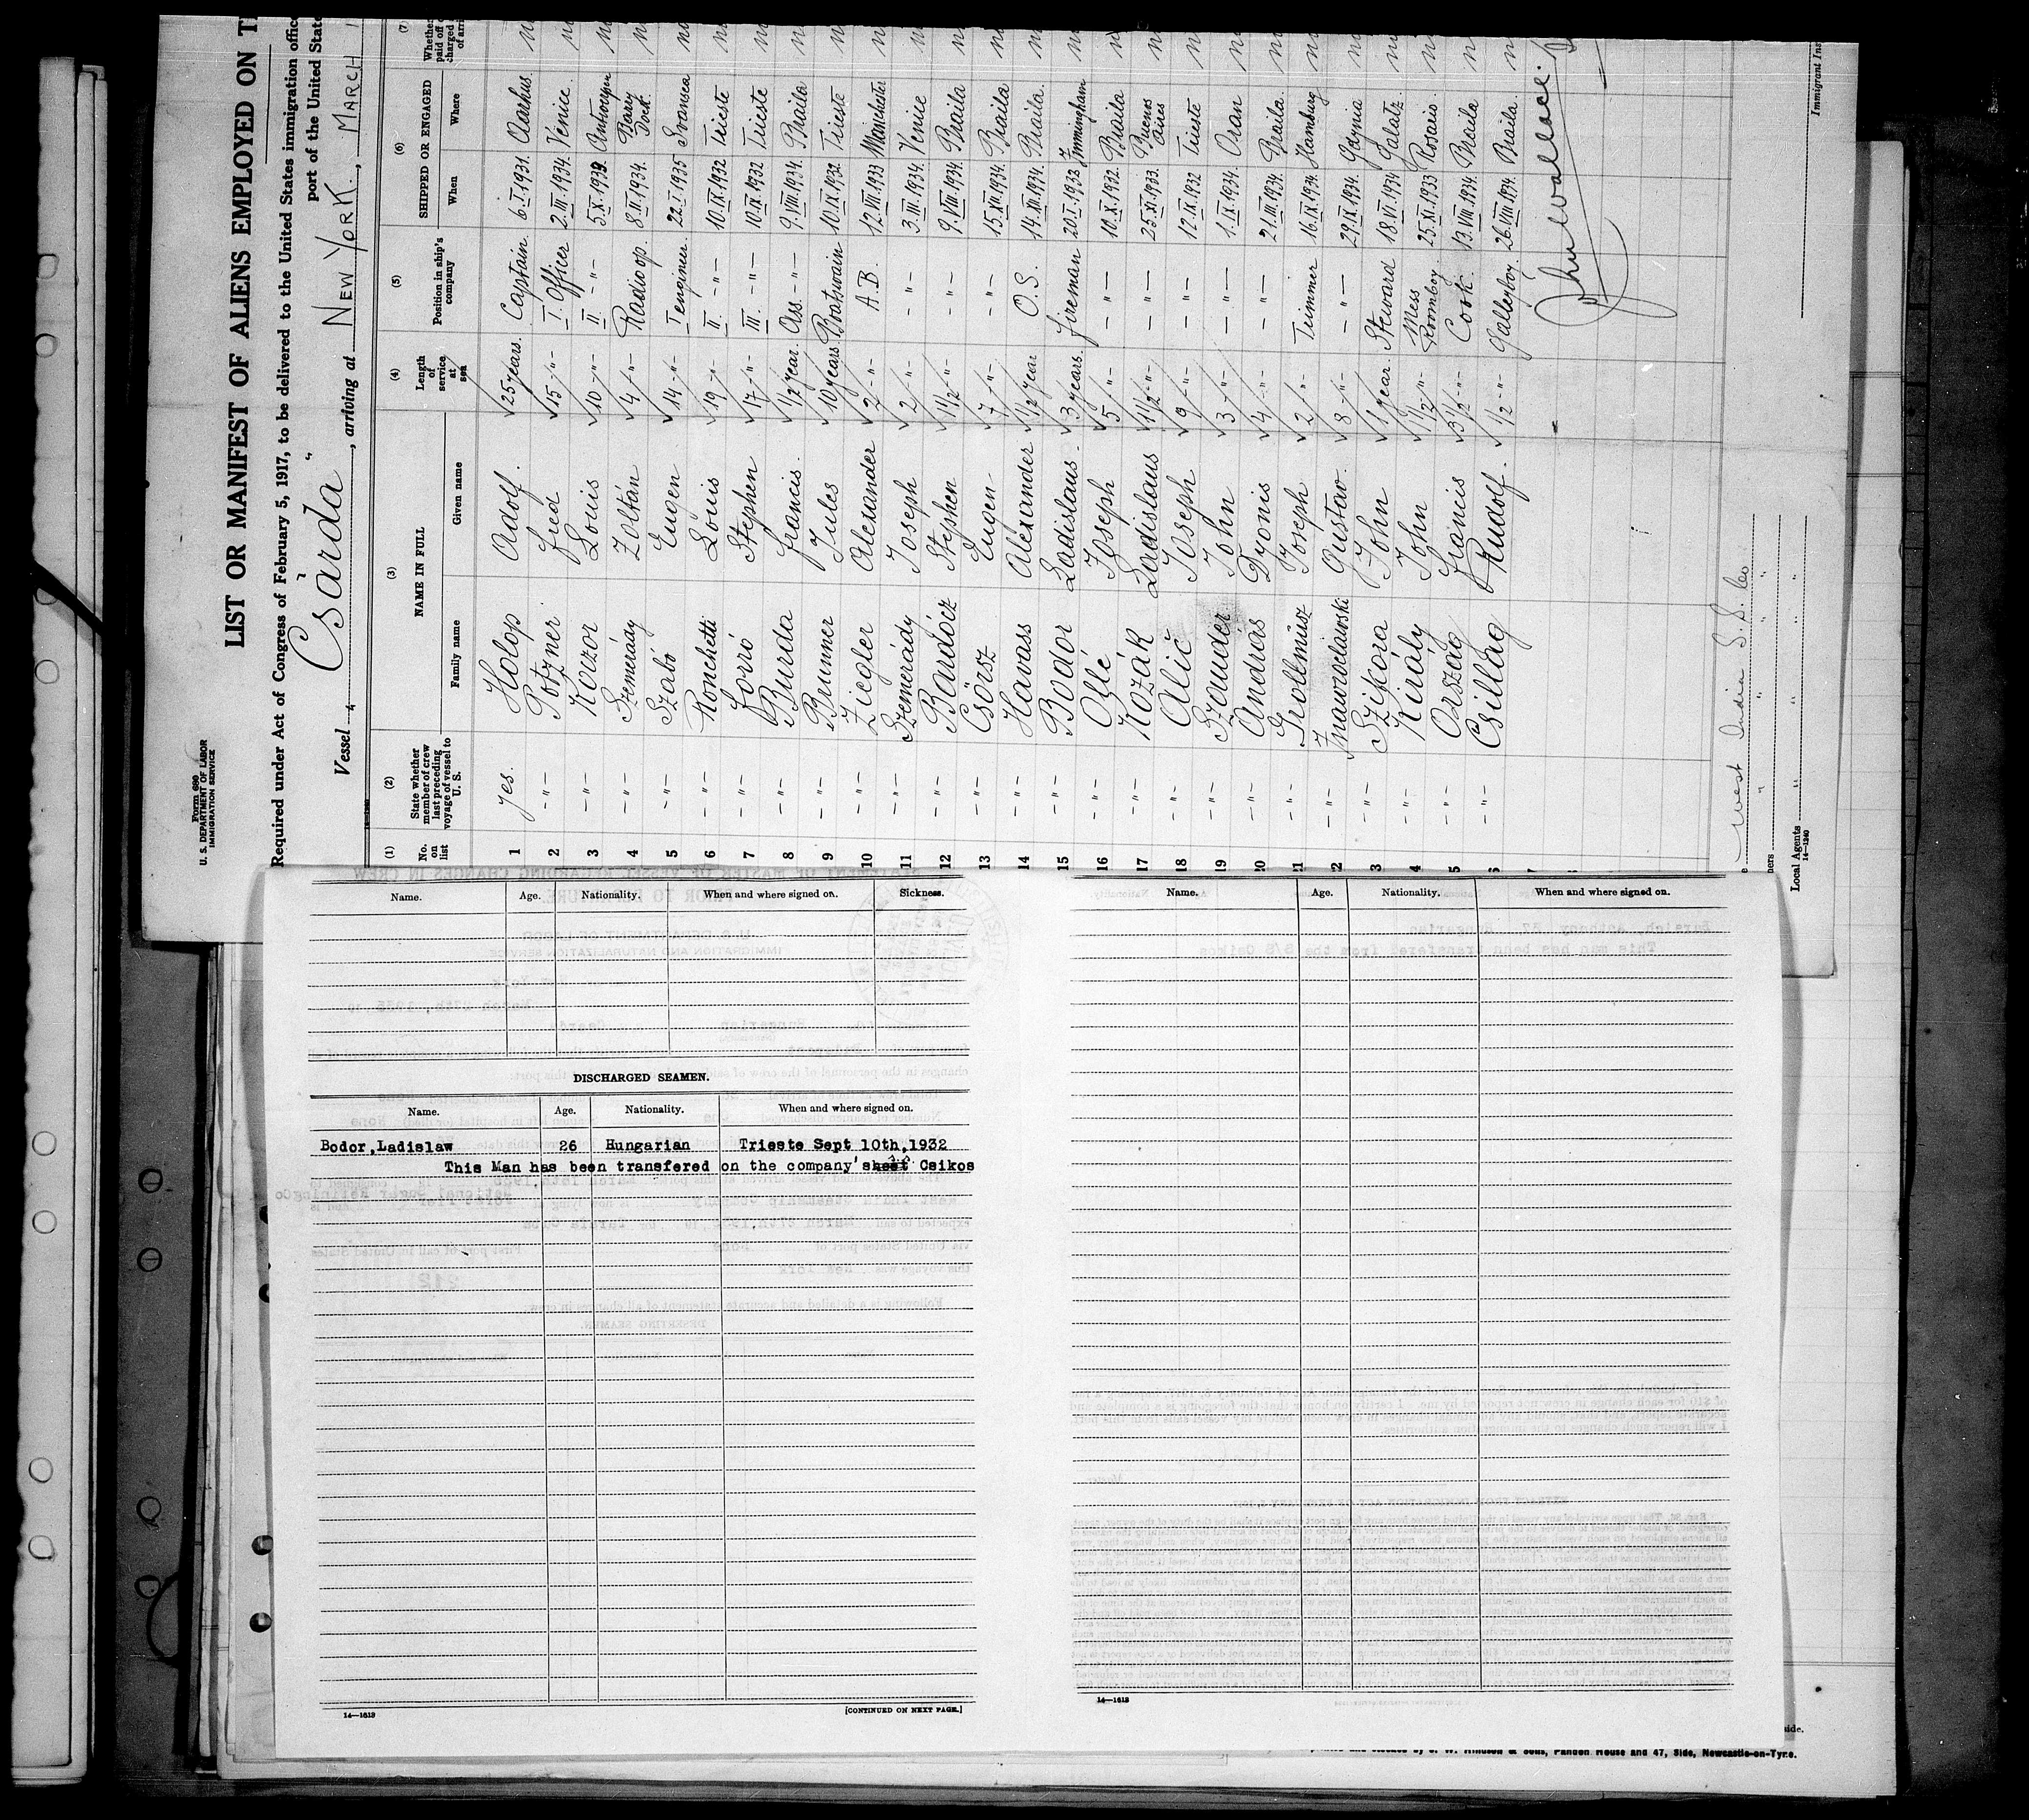 Form 680
U. S. DEPARTMENT OF LABOR
IMMIGRATION SERVICE
LIST OR MANIFEST OF ALIENS EMPLOYED ON
Required under Act of Congress of February 5, 1917, to be delivered to the United States immigration
port of the United
Vessel "Csárda", arriving at NEW YORK, MARCH
(1) (2) (3) (4) (5) (6) (7)
No. on list State whether member of crew last preceding voyage of vessel to U. S. NAME IN FULL Length of service at sea Position in ship's company SHIPPED OR ENGAGED
Family name Given name When Where
1 yes. Holop Adolf. 25 years. Captain. 6.I.1931. Aarhus.
2 -"- Potzner Fred 15 -"- I. Officer 2.III.1934. Venice.
3 -"- Koczor Louis 10 -"- II -"- 5.X.1932. Antwerpen
4 -"- Szemerády Zoltán 4 -"- Radio op. 8.II.1934. Barry Dock.
5 -"- Szabó Eugen 14 -"- I engineer 22.I.1935
6 -"- Ronchetti Louis 19 -"- II. -"- 10.IX.1932 Trieste
7 -"- Forró Stephen 17 -"- III. -"- 10.IX.1932 Trieste
8 -"- Burda Francis. 1/2 year. Ass. -"- 9.VIII.1934. Braila
9 -"- Brunner Jules 10 years. Boatswain 10.IX.1932. Trieste
10 -"- Ziegler Alexander 2 -"- A.B. 12.VIII.1933 Manchester
11 -"- Szemerády Joseph 2 -"- -"- 3.III.1934. Venice
12 -"- Bardócz Stephen 1 1/2 -"- -"- 9.VIII.1934. Braila
13 -"- Csörsz Eugen 7 -"- -"- 15.XII.1934. Braila
14 -"- Havass Alexander 1 1/2 year O.S. 14.XII.1934. Braila.
15 -"- Bodor Ladislaus. 3 years. Fireman 20.I.1932 Immingham
16 -"- Ollé Joseph 5 -"- -"- 10.X.1932. Braila
17 -"- Kozák Ladislaus 1 1/2 -"- -"- 25.XI.1933. Buenos Aires
18 -"- Alič Joseph 9 -"- -"- 12.IX.1932 Trieste
19 -"- Szauder John 3 -"- -"- 1.IX.1934. Oran
20 -"- András Dyonis 4 -"- -"- 21.III.1934. Braila.
21 -"- Joseph 2 -"- Trimmer 16.IX.1934. Hamburg
22 -"- Gustav. 8 -"- -"- 29.IX.1934. Gdynia
3 -"- Szikora John 1 year. Steward 18.VI.1934 Galatz.
4 -"- Király John 1 1/2 -"- Mess Roomboy. 25.XI.1933 Rosario.
5 -"- Ország Francis 3 1/2 -"- Cook. 13.VIII.1934. Braila
6 -"- Csillag Rudolf. 1/2 -"- Galleyboy. 26.VIII.1934. Braila.
John Wallace.
West India S.S. Co.
Local Agents
14—1240
Immigrant
Name. Age. Nationality. When and where signed on. Sickness.
DISCHARGED SEAMEN.
Name. Age. Nationality. When and where signed on.
Bodor, Ladislaw 26 Hungarian Trieste Sept 10th, 1932
This Man has been transfered on the company's Csikos
14—1613
[CONTINUED ON NEXT PAGE.]
Name. Age. Nationality. When and where signed on.
14—1613
side.
Sons, Pandon House and 47, Side, Newcastle-on-Tyne.